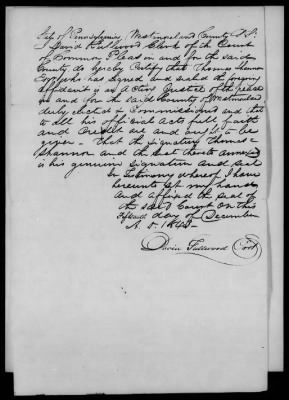 of Pennsylvania, Westmoreland County S.S.
I David Fullwood Clerk of the Court
of Common Pleas in and for the said
County do hereby Certify that Thomas Shannon
Esq who has signed and sealed the foregoing
affidavit is an Acting Justice of the peace
in and for the said County of Westmoreland
duly elected & Commissioned and that
to all his Official Acts full faith
and Credit are and ought to be
given - that the Signature Thomas
Shannon and the seal thereto annexed
is his genuine signature and seal
In Testimony whereof I have
hereunto set my hand
and affixed the seal of
the said Court on this
day of December
A. D. 1843-
David Fullwood